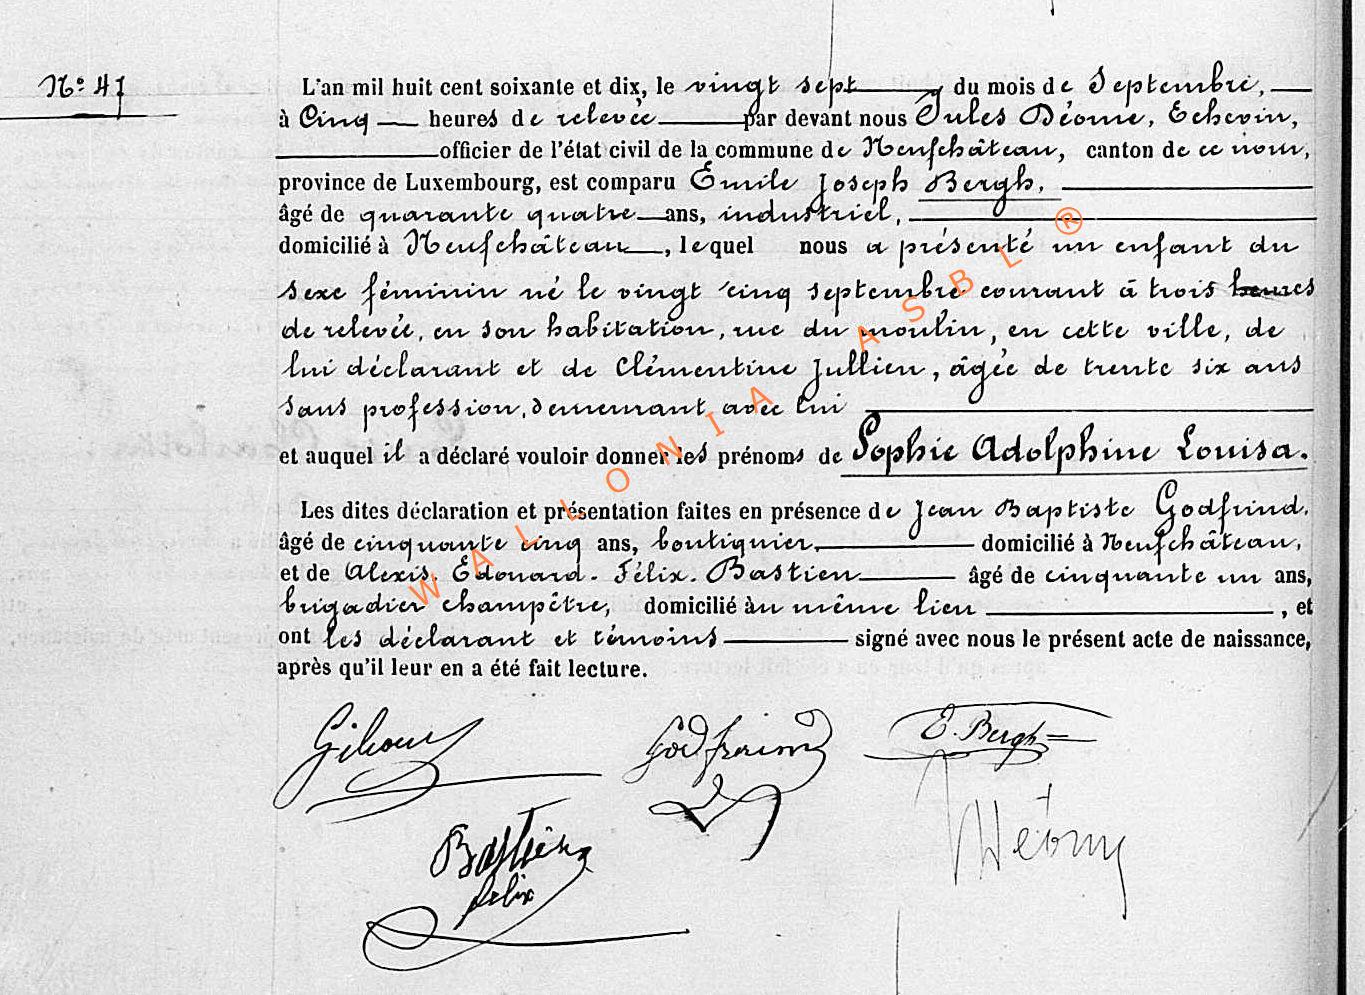 N° 47
L'an mil huit cent soixante et dix, le vingt sept du mois de Septembre,
à Cinq heures de relevée par devant nous Jules Déome, Echevin,
officier de l'état civil de la commune de Neufchâteau, canton de ce nom,
province de Luxembourg, est comparu Emile Joseph Bergh,
âgé de quarante quatre ans, industriel,
domicilié à Neufchâteau, lequel nous a présenté un enfant du
sexe féminin né le vingt cinq septembre courant à trois heures
de relevée, en son habitation, rue du moulin, en cette ville, de
lui déclarant et de Clémentine Jullien, âgée de trente six ans
sans profession, demeurant avec lui
et auquel il a déclaré vouloir donner les prénoms de Sophie Adolphine Louisa.
Les dites déclaration et présentation faites en présence de Jean Baptiste Godfrind,
âgé de cinquante cinq ans, boutiquier, domicilié à Neufchâteau,
et de Alexis. Edouard. Félix. Bastien âgé de cinquante un ans,
brigadier champêtre, domicilié au même lieu, et
ont les déclarant et témoins signé avec nous le présent acte de naissance,
après qu'il leur en a été fait lecture.
WALLONIA ASBL ®
E. Bergh
Bastien
felix
Déome